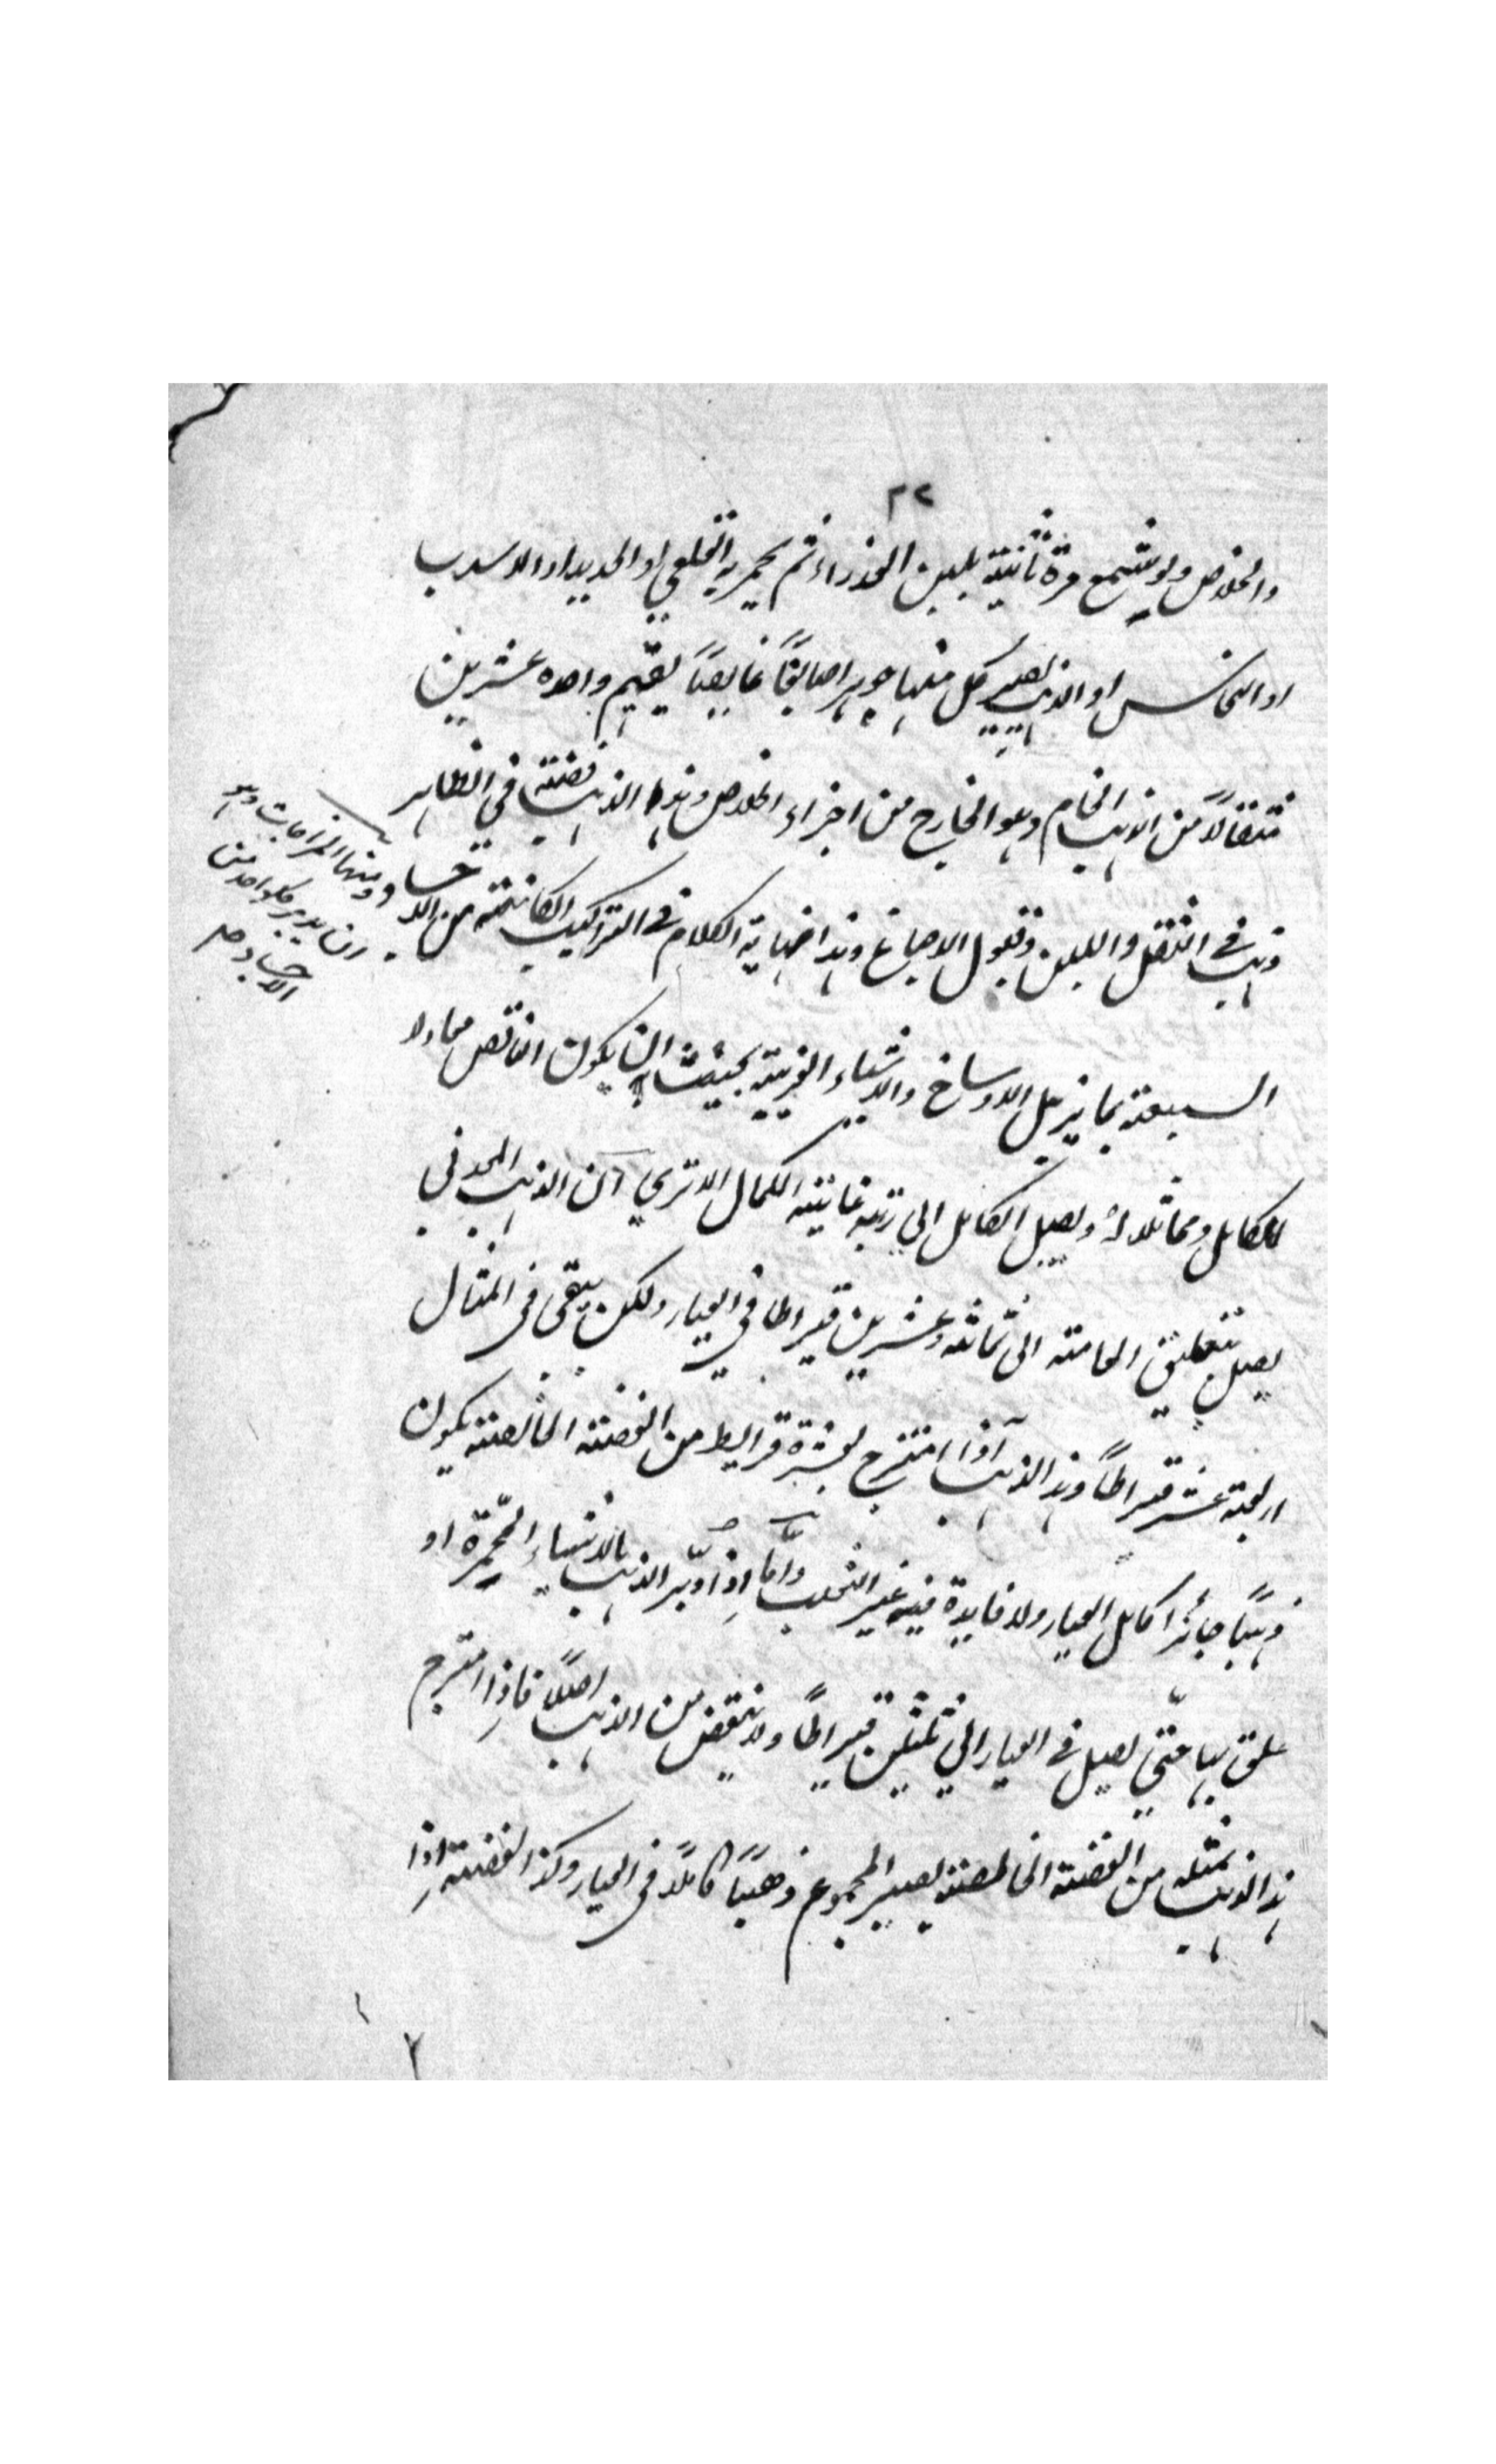 ٢٢
والخلاص ولو شمع مرة ثانية بلبن العذراء ثم يحمر به القلعي او الحديد او الاسرب
او النحاس او الذهب يصير كل منها جوهرا صابغًا غايصًا يقيم واحده عشرين
مثقالًا من الذهب الخام وهو الخارج من اجزاء الخلاص وهذا الذهب فضة في الظاهر
ذهب في الثقل واللين وقبول الاصباغ وهذا نهاية الكلام في التراكيب الكائنة من الاجساد
ومنها المزاجات وهو
ان يدبر كلواحد من
الاجساد صح
السبعة بما يزيل الاوساخ والاشياء الغريبة بحيث ان يكون الناقص معادلا
للكامل ومماثلا له ويصل الكامل الي رتبة غاية الكمال الا تري ان الذهب المعدني
يصل بتعليق العامة الى ثمانية وعشرين قيراطا في العيار ولكن يبقى في المثال
اربعة عشر قيراطًا وهذا الذهب اذا امتزج بعشرة قراريط من الفضة الخالصة يكون
ذهبًا جائزا كامل العيار ولا فايدة فيه غير التعب وامّا اذا دبّر الذهب بالاشياء المحمّرة او
علق بها حتّي يصل في العيار الي ثلثين قيراطًا ولا ينقص من الذهب اصلًا فاذا امتزج
هذا الذهب بمثله من الفضة الخالصة يصير المجموع ذهبًا كاملًا في العيار وكذا الفضة اذا